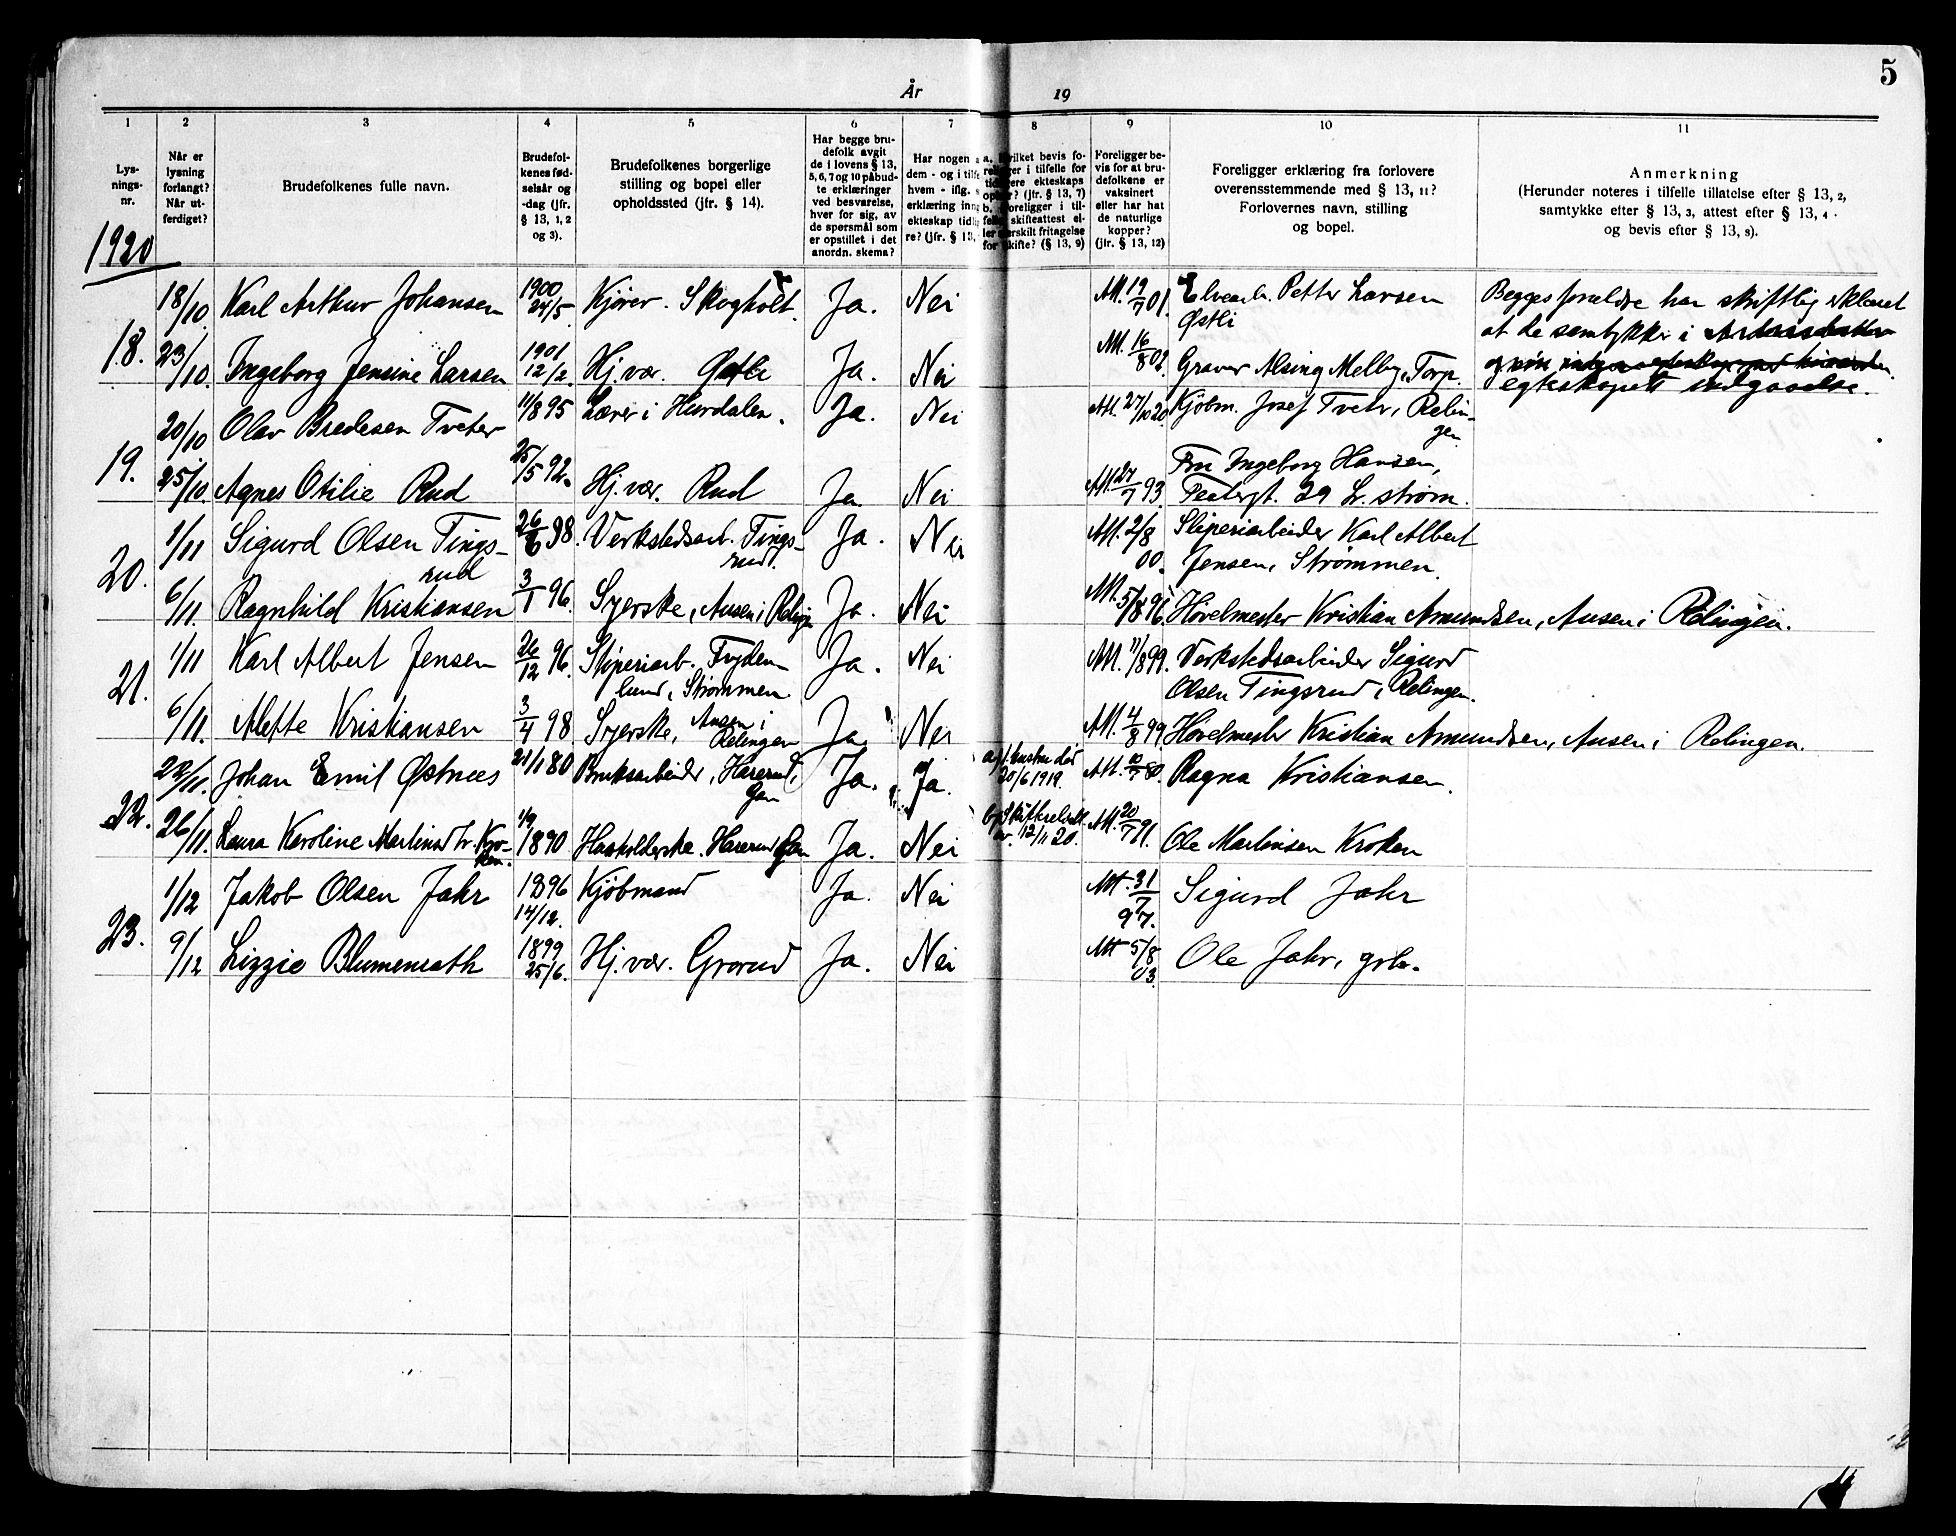 5
År 19
1 2 3 4 5 6 7 8 9 10 11
Lys-
nings-
nr.
Når er
lysning
forlangt?
Når ut-
ferdiget?
Brudefolkenes fulle navn.
Brudefol-
kenes fød-
selsår og
-dag (jfr.
§ 13, 1, 2
og 3).
Brudefolkenes borgerlige
stilling og bopel eller
opholdssted (jfr. § 14).
Har begge bru-
defolk avgit
de i lovens § 13,
5, 6, 7 og 10 påbud-
te erklæringer
ved besvarelse,
hver for sig, av
de spørsmål som
er opstillet i det
anordn. skema?
Har nogen a
dem - og i tilf
hvem - iflg.
erklæring inn
ekteskap tidl
re? (jfr. § 13,
a. Hvilket bevis fo-
religger i tilfelle for
tidligere ekteskaps
ophør? (jfr. § 13, 7)
b. Foreligger i til-
felle skifteattest el-
ler særskilt fritagelse
for skifte? (§ 13, 9)
Foreligger be-
vis for at bru-
defolkene er
vaksinert
eller har hat
de naturlige
kopper?
(jfr. § 13, 12)
Foreligger erklæring fra forlovere
overensstemmende med § 13, 11?
Forlovernes navn, stilling
og bopel.
Anmerkning
(Herunder noteres i tilfelle tillatelse efter § 13, 2,
samtykke efter § 13, 3, attest efter § 13, 4
og bevis efter § 13, 8).
1920
18/10 Karl Arthur Johansen 1900 24/5 Kjører. Skogholt. Ja. Nei Att. 19/7 01. Elvearb. Petter Larsen Østli
Begges forældre har skriftlig erklæret
at de samtykker i
egteskapets indgaaelse.
18. 23/10. Ingeborg Jensine Larsen 1901 12/2. Hj. vær. Østli Ja. Nei Att. 16/8 02. Graver Alsing Melby, Torp.
20/10 Olav Bredesen Tveter 11/8 95 Lærer i Hurdalen. Ja. Nei Att. 27/10 20 Kjøbm. Josef Tveter, Relin-
gen
19. 25/10. Agnes Otilie Rud 25/5 92. Hj. vær. Rud Ja. Nei Att. 27/7 93. Fru Ingeborg Hansen,
Teatergt. 29 L. strøm.
1/11 Sigurd Olsen Tings-
rud 26/6 98. Verkstedsarb. Tings-
rud. Ja. Nei Att. 2/8 00. Sliperiarbeider Karl Albert
Jensen, Strømmen.
20. 6/11 Ragnhild Kristiansen 3/1 96. Syerske, Ausen i Relingen Ja. Nei Att. 5/8 96. Høvelmester Kristian Amundsen, Ausen i Relingen.
1/11 Karl Albert Jensen 26/12 96. Sliperiarb. Fryden-
lund, Strømmen Ja. Nei Att. 11/8 99. Verkstedsarbeider Sigurd
Olsen Tingsrud, Relingen.
21. 6/11. Alette Kristiansen 3/4 98 Syerske, Ausen i
Relingen Ja. Nei Att. 4/8 99 Høvelmester Kristian Amundsen, Ausen i Relingen.
22/11. Johan Emil Østnes 21/1 80 Bruksarbeider, Harerud,
Gan Ja. Ja. a) f. hustru død
20/6 1919. Att. 10/7 80. Ragna Kristiansen.
22. 26/11. Laura Karoline Martinsdtr. Kro-
ken. 1890 Husholderske. Harerud, Gan Ja. Nei b) 12/11 20. Att. 20/7 91. Ole Martinsen Kroken
1/12 Jakob Olsen Jahr 1896 14/12. Kjøbmand Ja. Nei Att. 31/7 97. Sigurd Jahr
23. 9/12 Lizzie Blumenrath 1899 25/6. Hj. vær. Grorud Ja. Nei Att 5/8 03. Ole Jahr, grbr.